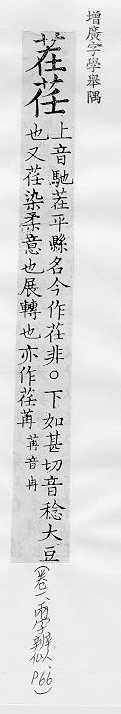 增廣字學舉隅
茬荏
上音馳茬平縣名今作茌非○下如甚切音稔大豆
也又荏染柔意也展轉也亦作荏苒 苒音冉
(卷一、兩字辨似、P66)